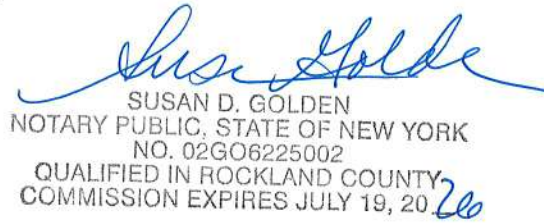 Susan Golden
SUSAN D. GOLDEN
NOTARY PUBLIC, STATE OF NEW YORK
NO. 02GO6225002
QUALIFIED IN ROCKLAND COUNTY
COMMISSION EXPIRES JULY 19, 2026